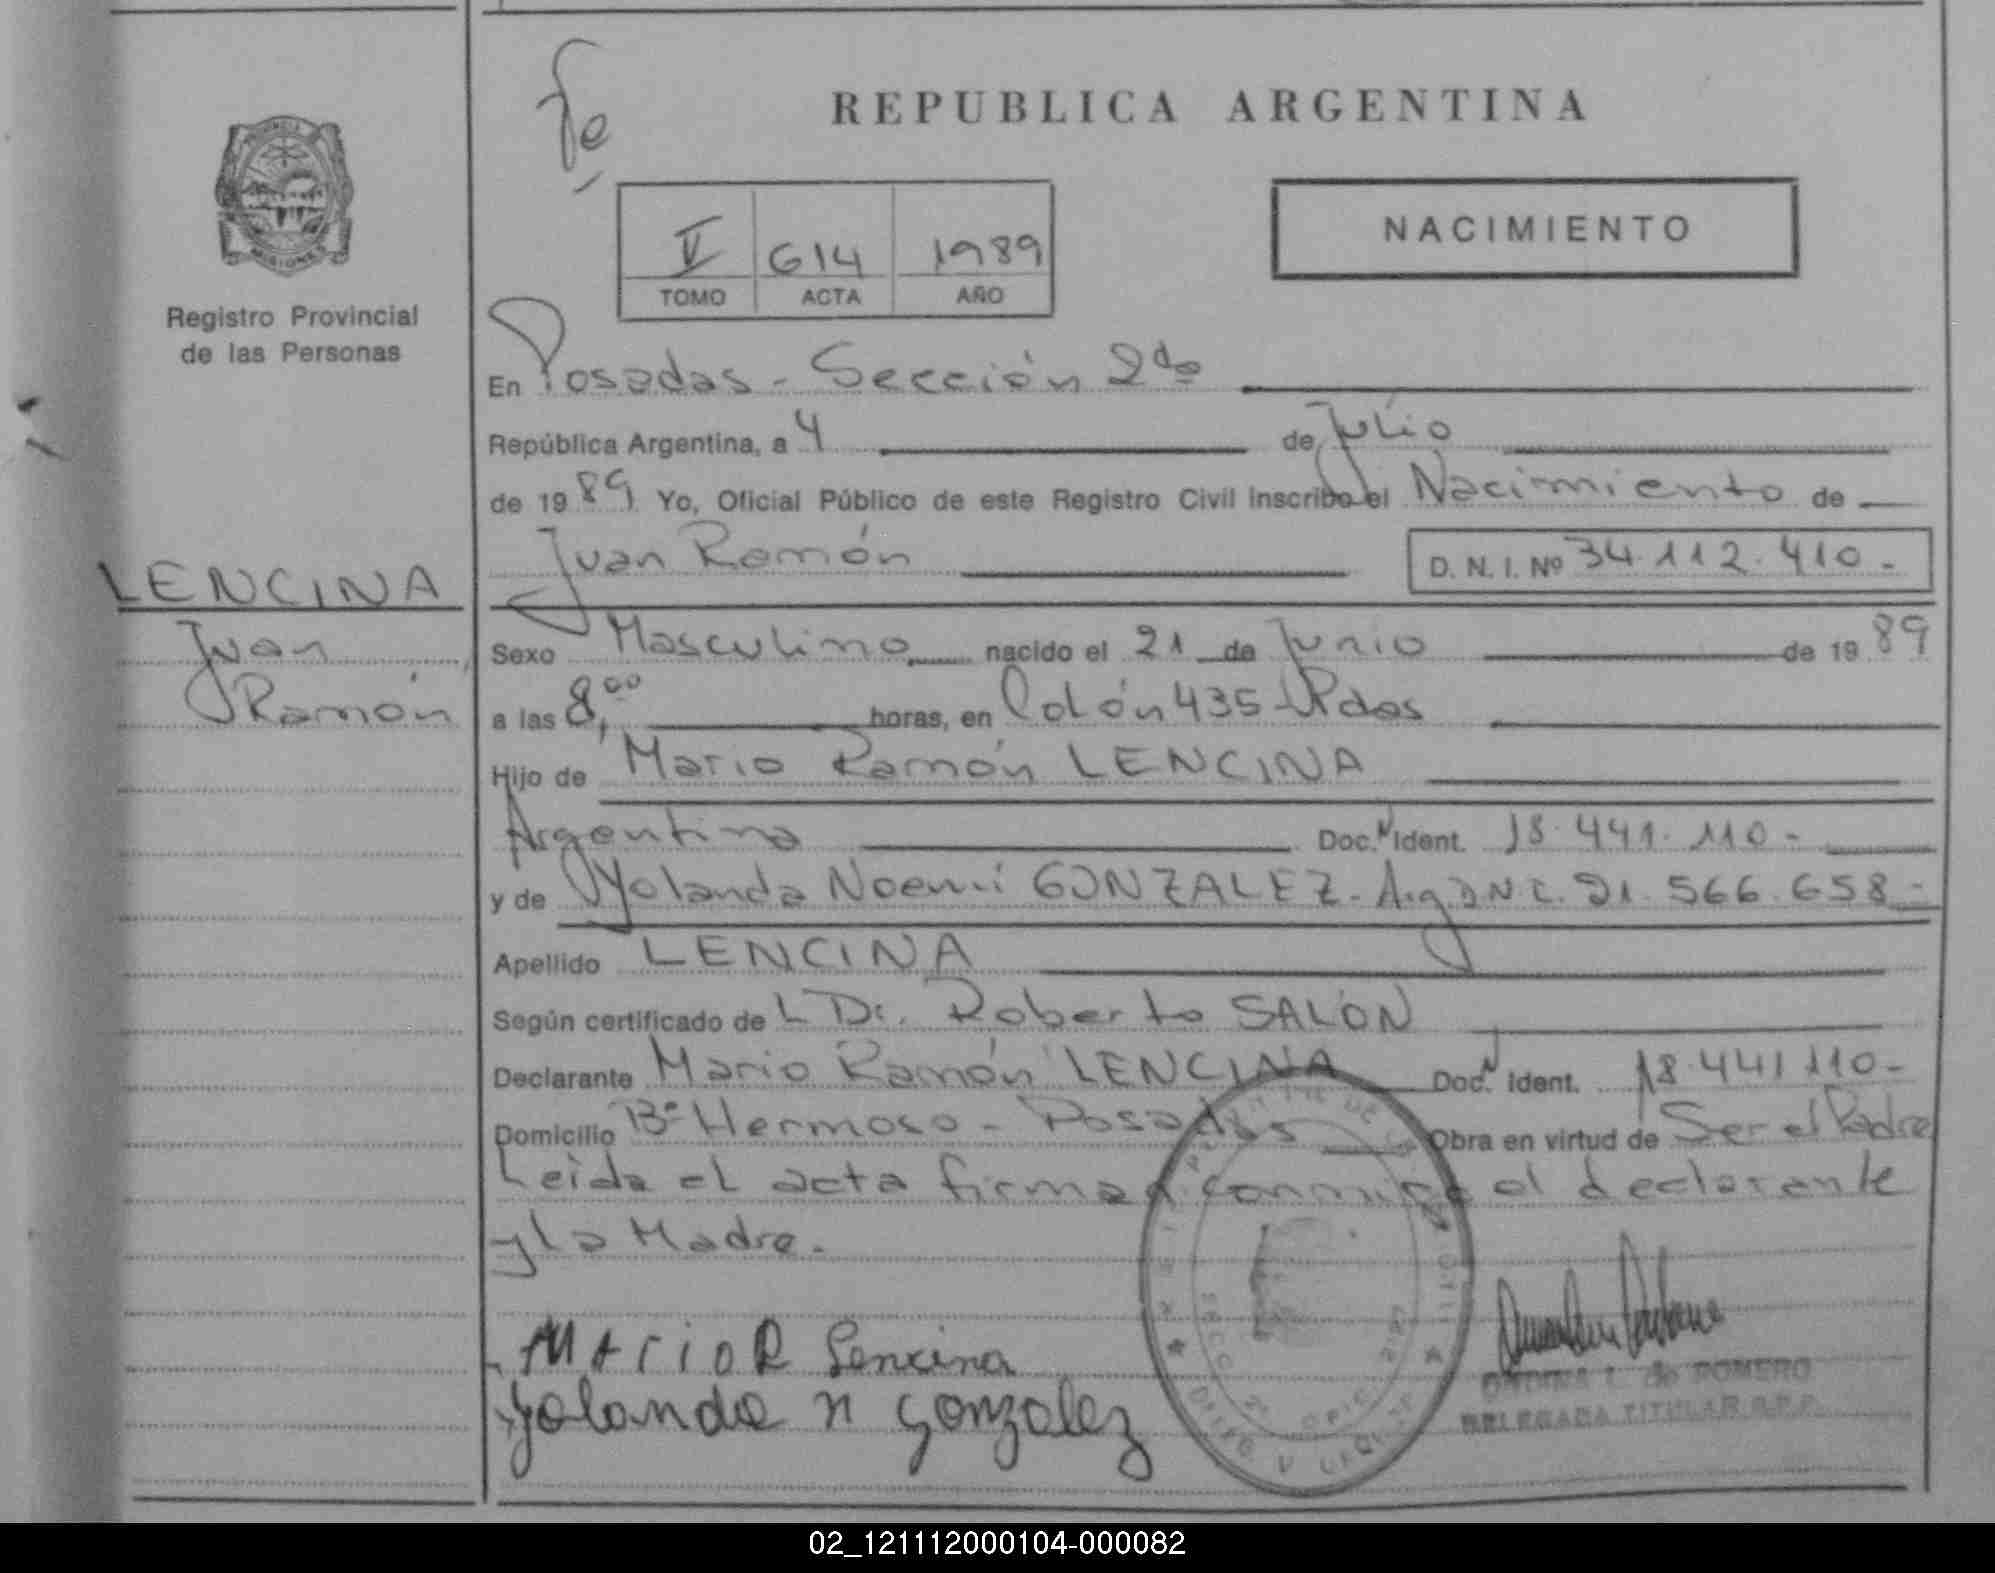 REPUBLICA ARGENTINA
PROVINCIA
MISIONES
Registro Provincial
de las Personas
V 614 1989
TOMO ACTA AÑO
NACIMIENTO
En Posadas - Sección 2da
República Argentina, a 4 de Julio
de 1989 Yo, Oficial Público de este Registro Civil inscribo el Nacimiento de
Juan Ramón D. N. I. Nº 34.112.410.-
LENCINA
Juan
Ramón
Sexo Masculino nacido el 21 de Junio de 1989
a las 8,00 horas, en Colón 435 - Pdas
Hijo de Mario Ramón LENCINA
Argentino Doc. N Ident. 18.441.110-
y de Yolanda Noemí GONZALEZ - Arg D.N.I. 21.566.658-
Apellido LENCINA
Según certificado de L Dr. Roberto SALÓN
Declarante Mario Ramón LENCINA Doc. N Ident. 18.441.110-
Domicilio Bº Hermoso - Posadas Obra en virtud de Ser el Padre
Leída el acta firman conmigo el declarante
y la Madre.
Mario R Lencina
Yolanda n gonzalez
ONDINA L. de ROMERO
DELEGADA TITULAR R.P.P.
02_121112000104-000082